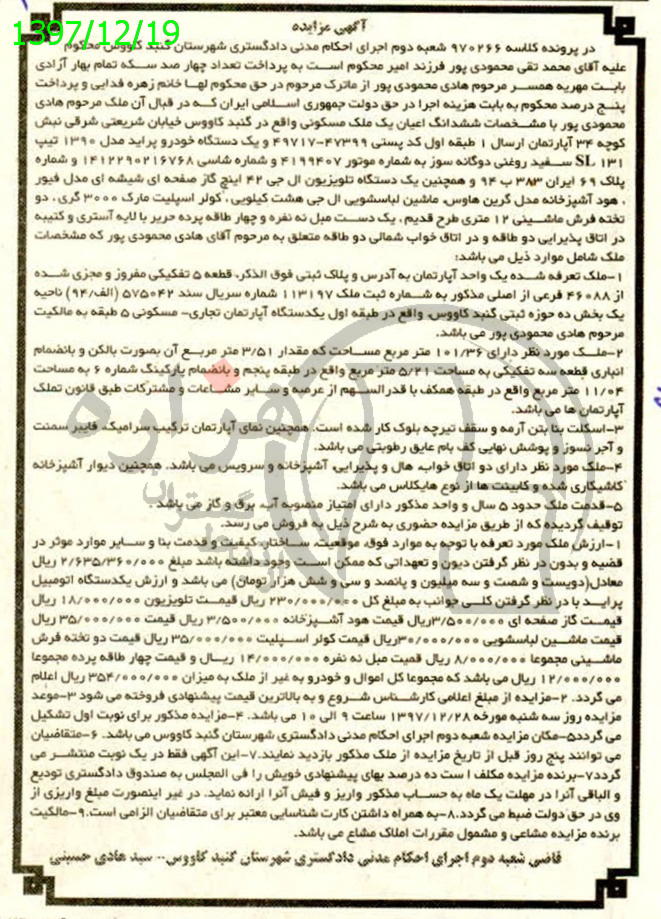 1397/12/19
آگهی مزایده
در پرونده کلاسه ۹۷۰۲۶۶ شعبه دوم اجرای احکام مدنی دادگستری شهرستان گنبد کاووس محکوم
علیه آقای محمد تقی محمودی پور فرزند امیر محکوم است به پرداخت تعداد چهار صد سکه تمام بهار آزادی
بابت مهریه همسر مرحوم هادی محمودی پور از ماترک مرحوم در حق محکوم لها خانم زهره فدایی و پرداخت
پنج درصد محکوم به بابت هزینه اجرا در حق دولت جمهوری اسلامی ایران که در قبال آن ملک مرحوم هادی
محمودی پور با مشخصات ششدانگ اعیان یک ملک مسکونی واقع در گنبد کاووس خیابان شریعتی شرقی نبش
کوچه ۳۴ آپارتمان ارسال ۱ طبقه اول کد پستی ۴۷۳۹۹-۴۹۷۱۷ و یک دستگاه خودرو پراید مدل ۱۳۹۰ تیپ
SL ۱۳۱ سفید روغنی دوگانه سوز به شماره موتور ۴۱۹۹۴۰۷ و شماره شاسی ۱۴۱۲۲۹۰۲۱۶۷۶۸ و شماره
پلاک ۶۹ ایران ۳۸۳ ب ۹۴ و همچنین یک دستگاه تلویزیون ال جی ۴۲ اینچ گاز صفحه ای شیشه ای مدل فیور
، هود آشپزخانه مدل گرین هاوس، ماشین لباسشویی ال جی هشت کیلویی ، کولر اسپلیت مارک ۳۰۰۰ گری ، دو
تخته فرش ماشینی ۱۲ متری طرح قدیم ، یک دست مبل نه نفره و چهار طاقه پرده حریر با لایه آستری و کتیبه
در اتاق پذیرایی دو طاقه و در اتاق خواب شمالی دو طاقه متعلق به مرحوم آقای هادی محمودی پور که مشخصات
ملک شامل موارد ذیل می باشد:
۱-ملک تعرفه شده یک واحد آپارتمان به آدرس و پلاک ثبتی فوق الذکر، قطعه ۵ تفکیکی مفروز و مجزی شده
از ۴۶۰۸۸ فرعی از اصلی مذکور به شماره ثبت ملک ۱۱۳۱۹۷ شماره سریال سند ۵۷۵۰۴۲ (الف/۹۴) ناحیه
یک بخش ده حوزه ثبتی گنبد کاووس، واقع در طبقه اول یکدستگاه آپارتمان تجاری- مسکونی ۵ طبقه به مالکیت
مرحوم هادی محمودی پور می باشد.
۲-ملک مورد نظر دارای ۱۰۱/۳۶ متر مربع مساحت که مقدار ۳/۵۱ متر مربع آن بصورت بالکن و بانضمام
انباری قطعه سه تفکیکی به مساحت ۵/۲۱ متر مربع واقع در طبقه پنجم و بانضمام پارکینگ شماره ۶ به مساحت
۱۱/۰۴ متر مربع واقع در طبقه همکف با قدرالسهم از عرصه و سایر مشاعات و مشترکات طبق قانون تملک
آپارتمان ها می باشد.
۳-اسکلت بنا بتن آرمه و سقف تیرچه بلوک کار شده است. همچنین نمای آپارتمان ترکیب سرامیک، فایبر سمنت
و آجر نسوز و پوشش نهایی کف بام عایق رطوبتی می باشد.
۴-ملک مورد نظر دارای دو اتاق خواب، هال و پذیرایی، آشپزخانه و سرویس می باشد. همچنین دیوار آشپزخانه
کاشیکاری شده و کابینت ها از نوع هایکلاس می باشد.
۵-قدمت ملک حدود ۵ سال و واحد مذکور دارای امتیاز منصوبه آب، برق و گاز می باشد .
توقیف گردیده که از طریق مزایده حضوری به شرح ذیل به فروش می رسد.
۱-ارزش ملک مورد تعرفه با توجه به موارد فوق، موقعیت، ساختار، کیفیت و قدمت بنا و سایر موارد موثر در
قضیه و بدون در نظر گرفتن دیون و تعهداتی که ممکن است وجود داشته باشد مبلغ ۲/۶۳۵/۳۶۰/۰۰۰ ریال
معادل(دویست و شصت و سه میلیون و پانصد و سی و شش هزار تومان) می باشد و ارزش یکدستگاه اتومبیل
پراید با در نظر گرفتن کلی جوانب به مبلغ کل ۲۳۰/۰۰۰/۰۰۰ ریال قیمت تلویزیون ۱۸/۰۰۰/۰۰۰ ریال
قیمت گاز صفحه ای ۳/۵۰۰/۰۰۰ریال قیمت هود آشپزخانه ۳/۵۰۰/۰۰۰ ریال قیمت ۳۵/۰۰۰/۰۰۰ ریال
قیمت ماشین لباسشویی ۳۰/۰۰۰/۰۰۰ریال قیمت کولر اسپلیت ۳۵/۰۰۰/۰۰۰ ریال قیمت دو تخته فرش
ماشینی مجموعا ۸/۰۰۰/۰۰۰ ریال قمیت مبل نه نفره ۱۴/۰۰۰/۰۰۰ ریال و قیمت چهار طاقه پرده مجموعا
۱۲/۰۰۰/۰۰۰ ریال می باشد که مجموعا کل اموال و خودرو به غیر از ملک به میزان ۳۵۴/۰۰۰/۰۰۰ ریال اعلام
می گردد. ۲-مزایده از مبلغ اعلامی کارشناس شروع و به بالاترین قیمت پیشنهادی فروخته می شود ۳-موعد
مزایده روز سه شنبه مورخه ۱۳۹۷/۱۲/۲۸ ساعت ۹ الی ۱۰ می باشد. ۴-مزایده مذکور برای نوبت اول تشکیل
می گردد۵-مکان مزایده شعبه دوم اجرای احکام مدنی دادگستری شهرستان گنبد کاووس می باشد. ۶-متقاضیان
می توانند پنج روز قبل از تاریخ مزایده از ملک مذکور بازدید نمایند.۷-این آگهی فقط در یک نوبت منتشر می
گردد۷-برنده مزایده مکلف ا ست ده درصد بهای پیشنهادی خویش را فی المجلس به صندوق دادگستری تودیع
و الباقی آنرا در مهلت یک ماه به حساب مذکور واریز و فیش آنرا ارائه نماید. در غیر اینصورت مبلغ واریزی از
وی در حق دولت ضبط می گردد.۸-به همراه داشتن کارت شناسایی معتبر برای متقاضیان الزامی است.۹-مالکیت
برنده مزایده مشاعی و مشمول مقررات املاک مشاع می باشد.
قاضی شعبه دوم اجرای احکام مدنی دادگستری شهرستان گنبد کاووس-- سید هادی حسینی